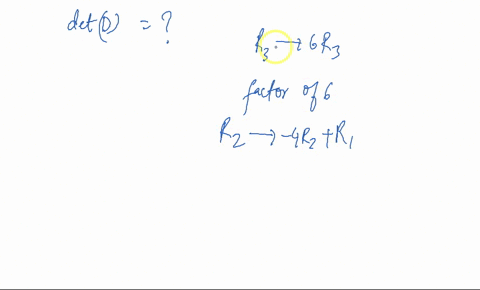 det(D) = ?
R₃ → 6R₃
factor of 6
R₂ → -4R₂ + R₁